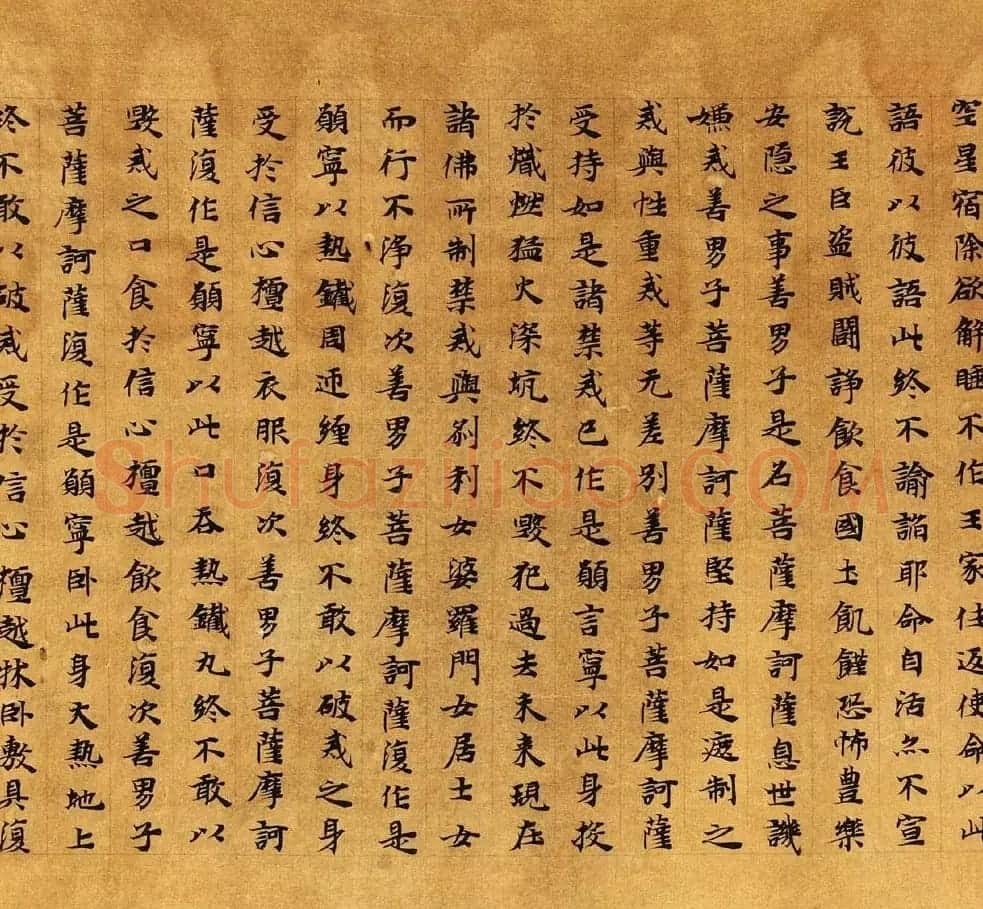 空星宿除欲解睡不作王家住返使命以此
語彼以彼語此終不諭諂耶命自活亦不宣
説王臣盜賊鬪諍飲食國土飢饉恐怖豊樂
安隐之事善男子是名菩薩摩訶薩息世譏
嫌戒善男子菩薩摩訶薩堅持如是遮制之
戒與性重戒等无差別善男子菩薩摩訶薩
受持如是諸禁戒已作是願言寧以此身投
於熾燃猛火深坑終不毀犯過去未来現在
諸佛所制禁戒與刹利女婆羅門女居士女
而行不淨復次善男子菩薩摩訶薩復作是
願寧以熱鐵周迊纏身終不敢以破戒之身
受於信心檀越衣服復次善男子菩薩摩訶
薩復作是願寧以此口吞熱鐵丸終不敢以
毀戒之口食於信心檀越飲食復次善男子
菩薩摩訶薩復作是願寧卧此身大熱地上
終不敢以破戒受於信心檀越牀卧敷具復
Shufaziliao.COM